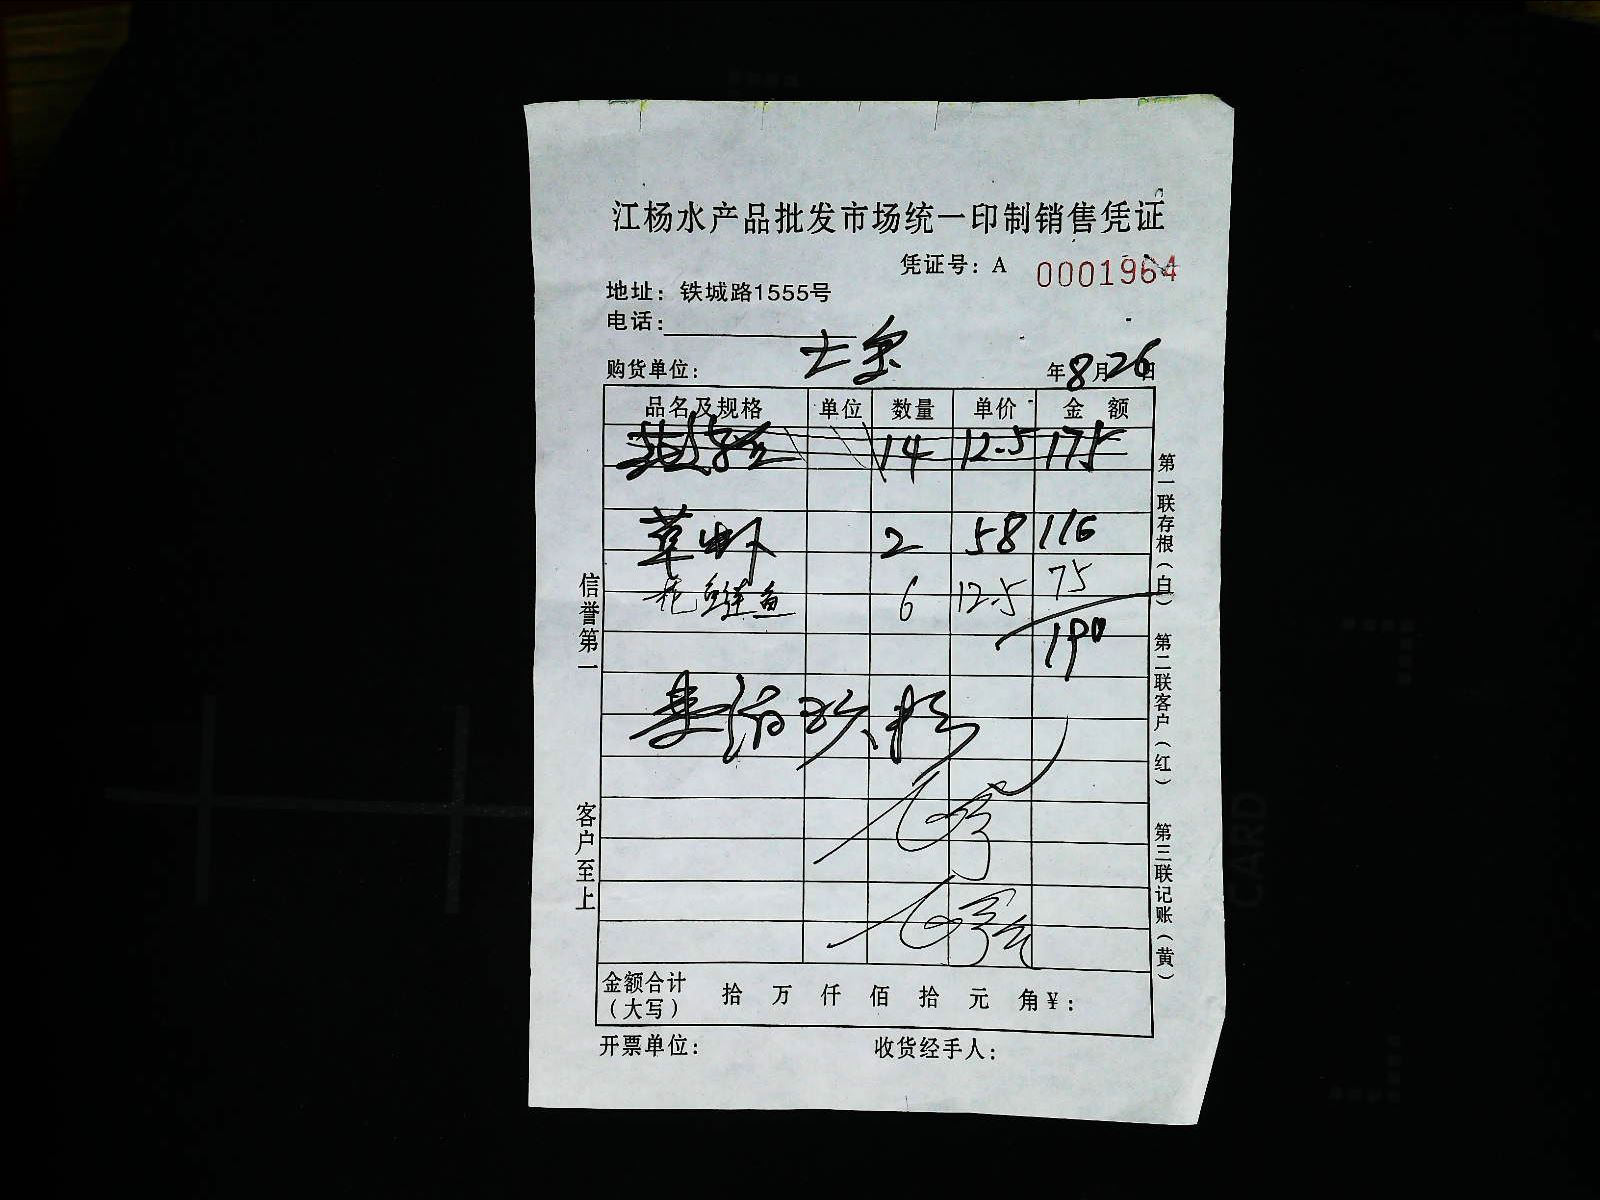 江杨水产品批发市场统一印制销售凭证
凭证号：A 0001964
地址：铁城路1555号
电话：
购货单位： 年8月26日
品名及规格 单位 数量 单价 金 额
14 12.5 175
草虾 2 58 116
花鲢鱼 6 12.5 75
190
金额合计（大写） 拾 万 仟 佰 拾 元 角￥：
开票单位： 收货经手人：
信誉第一
客户至上
第一联存根（白）
第二联客户（红）
第三联记账（黄）